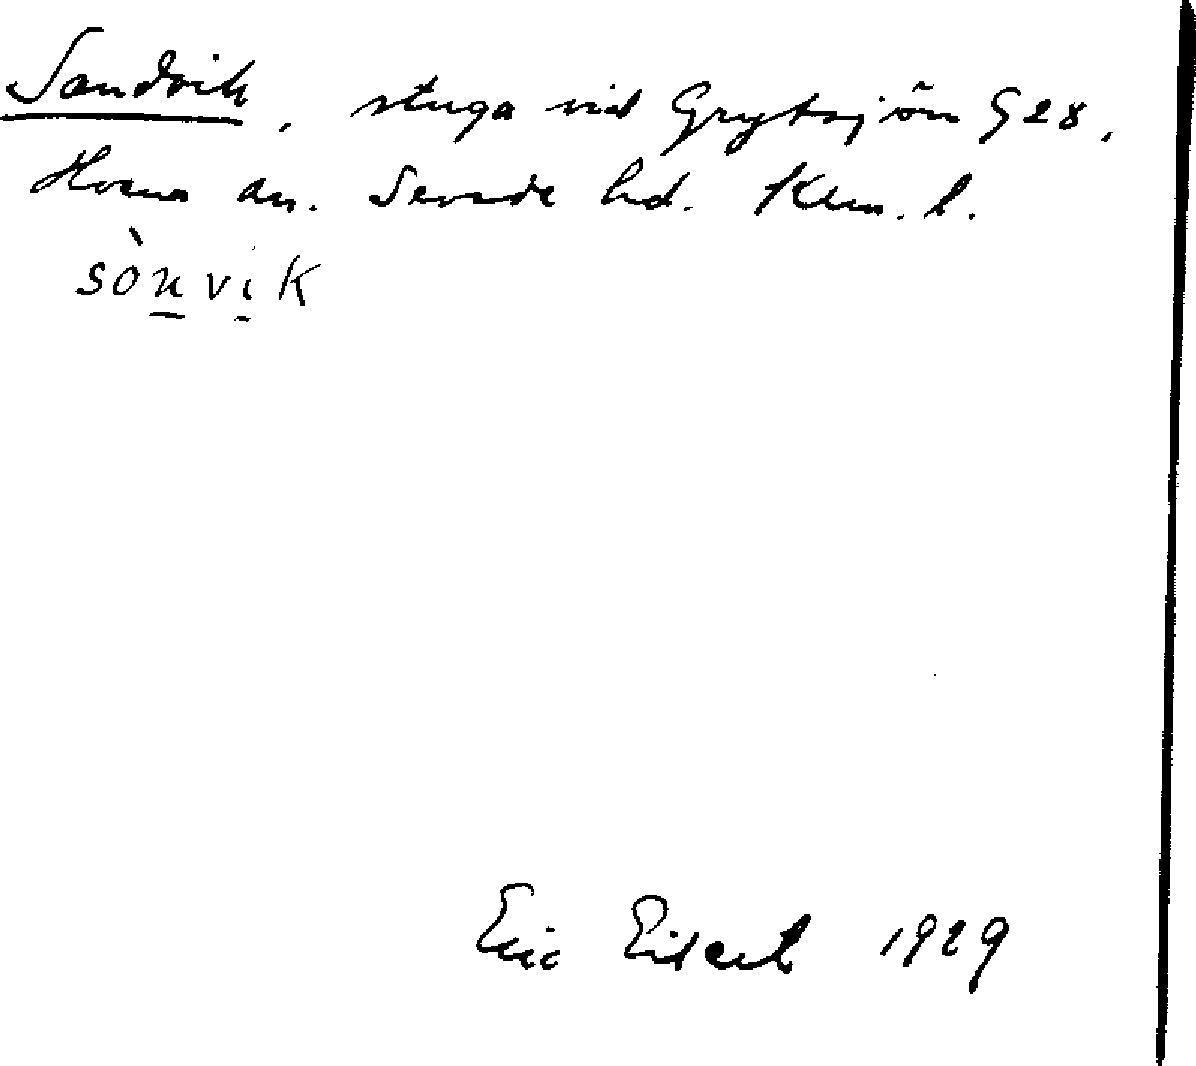 Sandvik, stuga vid Grytsjön G28,
sn. Sevede hd. Klm. l.
sònvik
Eric 1929